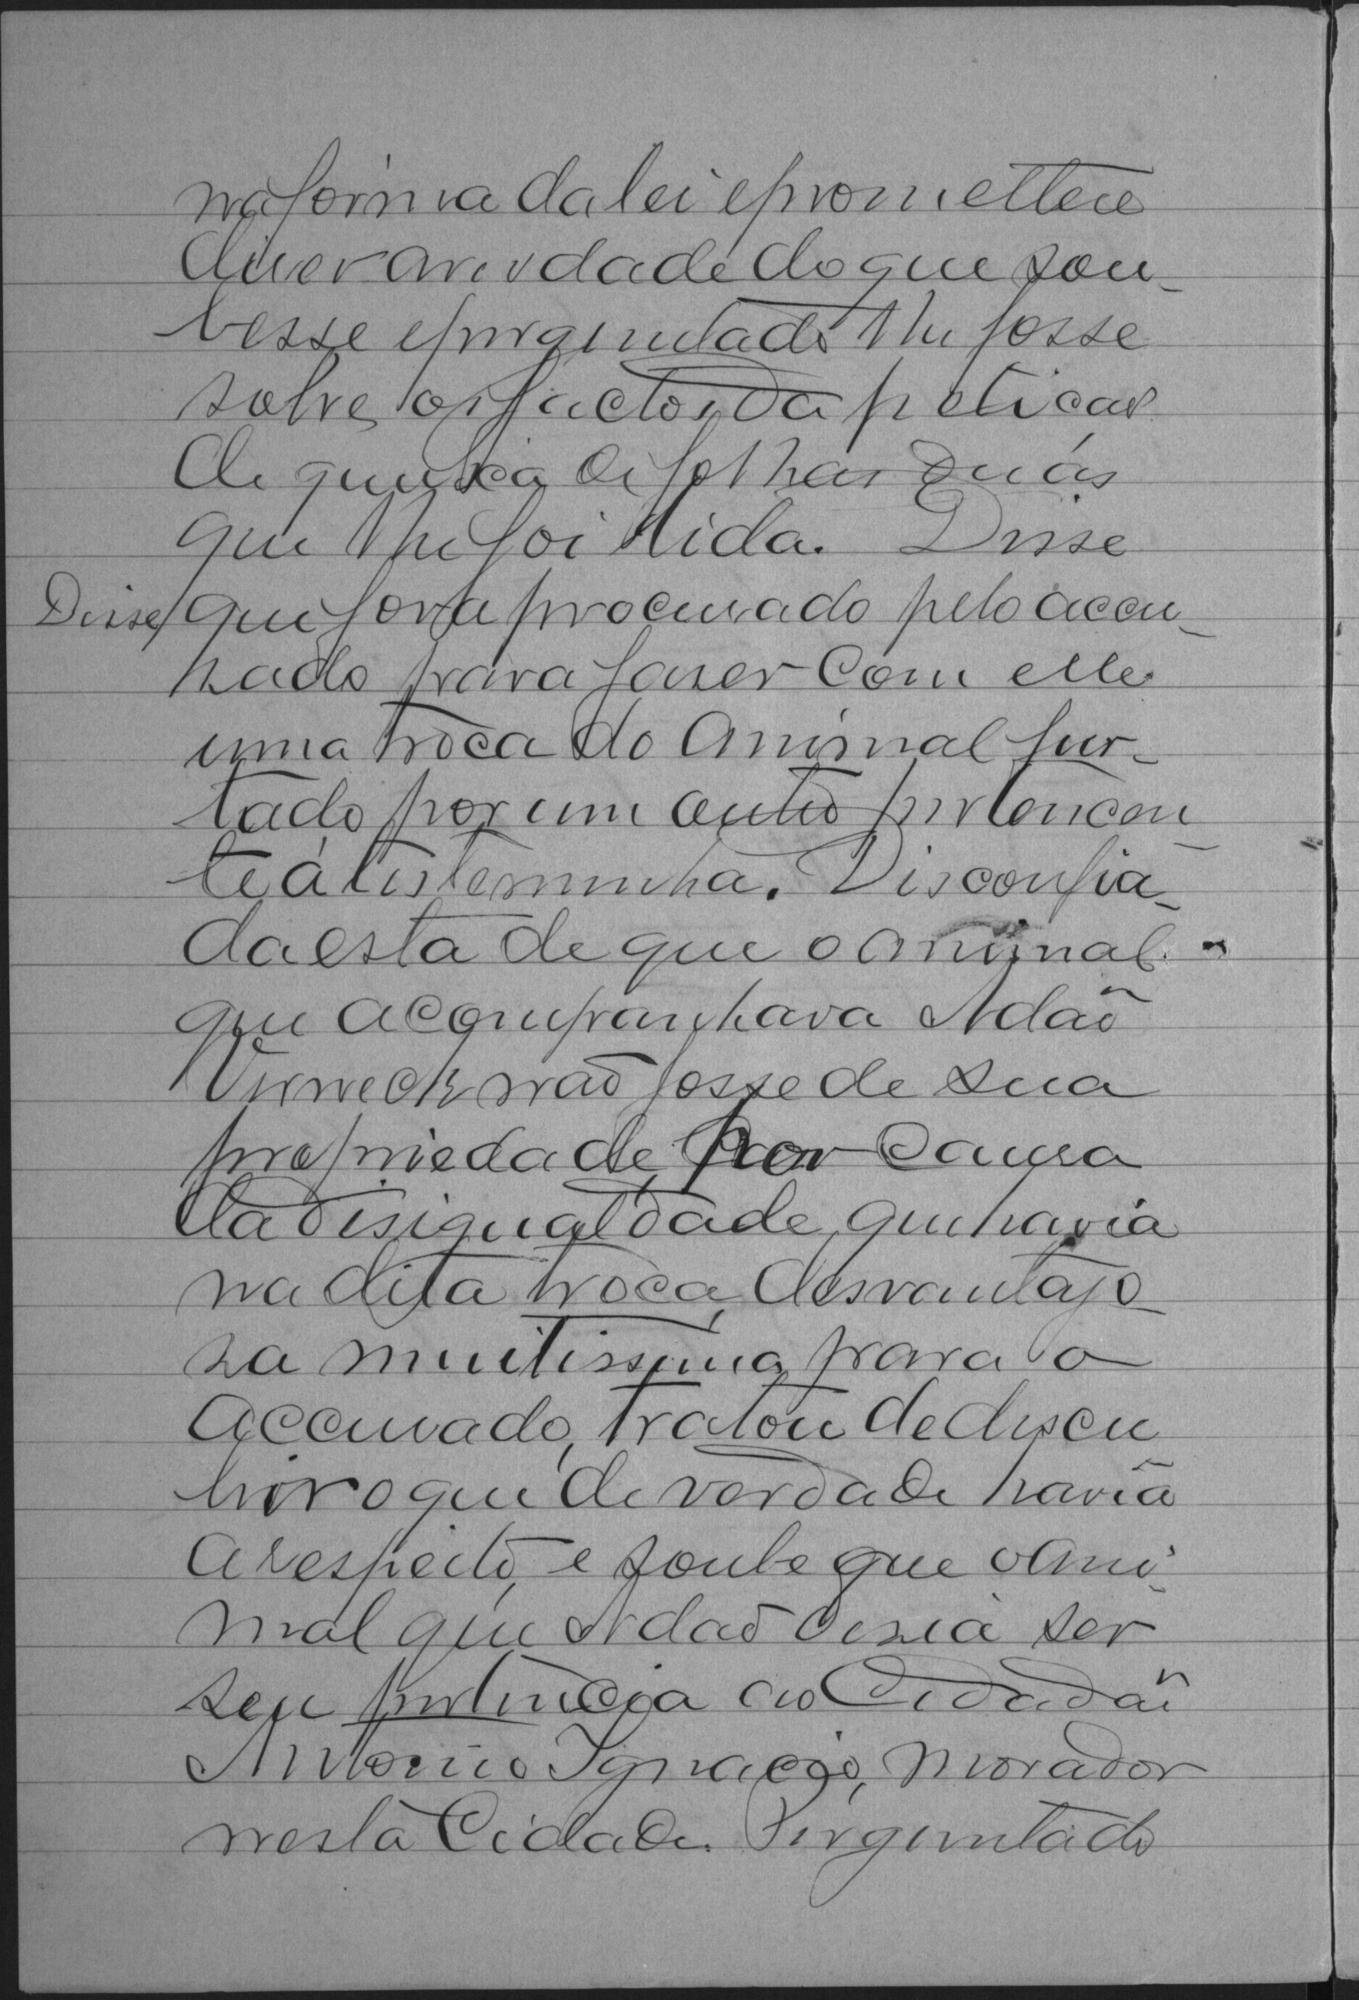 na fórma da lei e prometteu
diser a verdade do que sou-
besse e perguntado lhe fosse
sobre os factos da peticaõ
de queixa de folhas duas
que lhe foi lida. Disse
Disse que fora procurado pelo accu-
sado para faser com elle
uma troca do animal fur-
tado por um outro pertencen-
te á testemunha. Disconfia-
da esta de que o animal
que acompanhava Adaõ
Werneck naõ fosse de sua
propriedade, por causa
da disigualdade, que havia
na dita troca, desvantajo-
sa muitissima para o
accusado, tratou de descu
brir o que de verdade havia
a respeito, e soube que o ani-
mal que Adaõ disia ser
seu pertencia ao Cidadaõ
Antonio Ignacio, morador
nesta Cidade. Perguntado